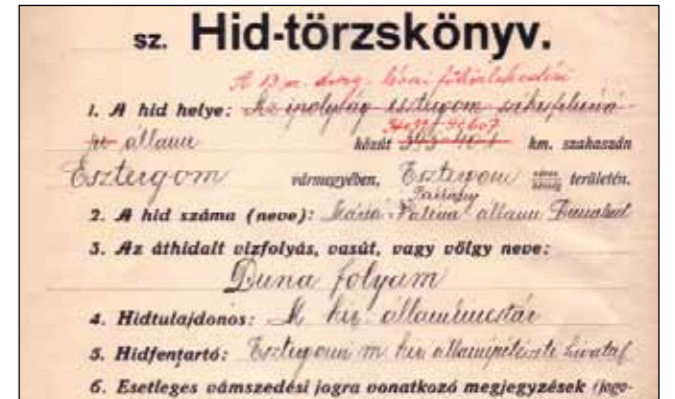 sz. Hid-törzskönyv.
A 13 sz. dorog-lévai főközlekedési
1. A hid helye: Az ipolyság esztergom székesfehérvá-
ri állami közút km. szakaszán
Esztergom vármegyében, Esztergom város község területén.
2. A hid száma (neve): Mária Valéria állami Dunahid
3. Az áthidalt vizfolyás, vasút, vagy völgy neve:
Duna folyam
4. Hidtulajdonos: M. kir. államkincstár
5. Hidfentartó: Esztergomi m. kir. államépitészeti hivatal
6. Esetleges vámszedési jogra vonatkozó megjegyzések (jogo-